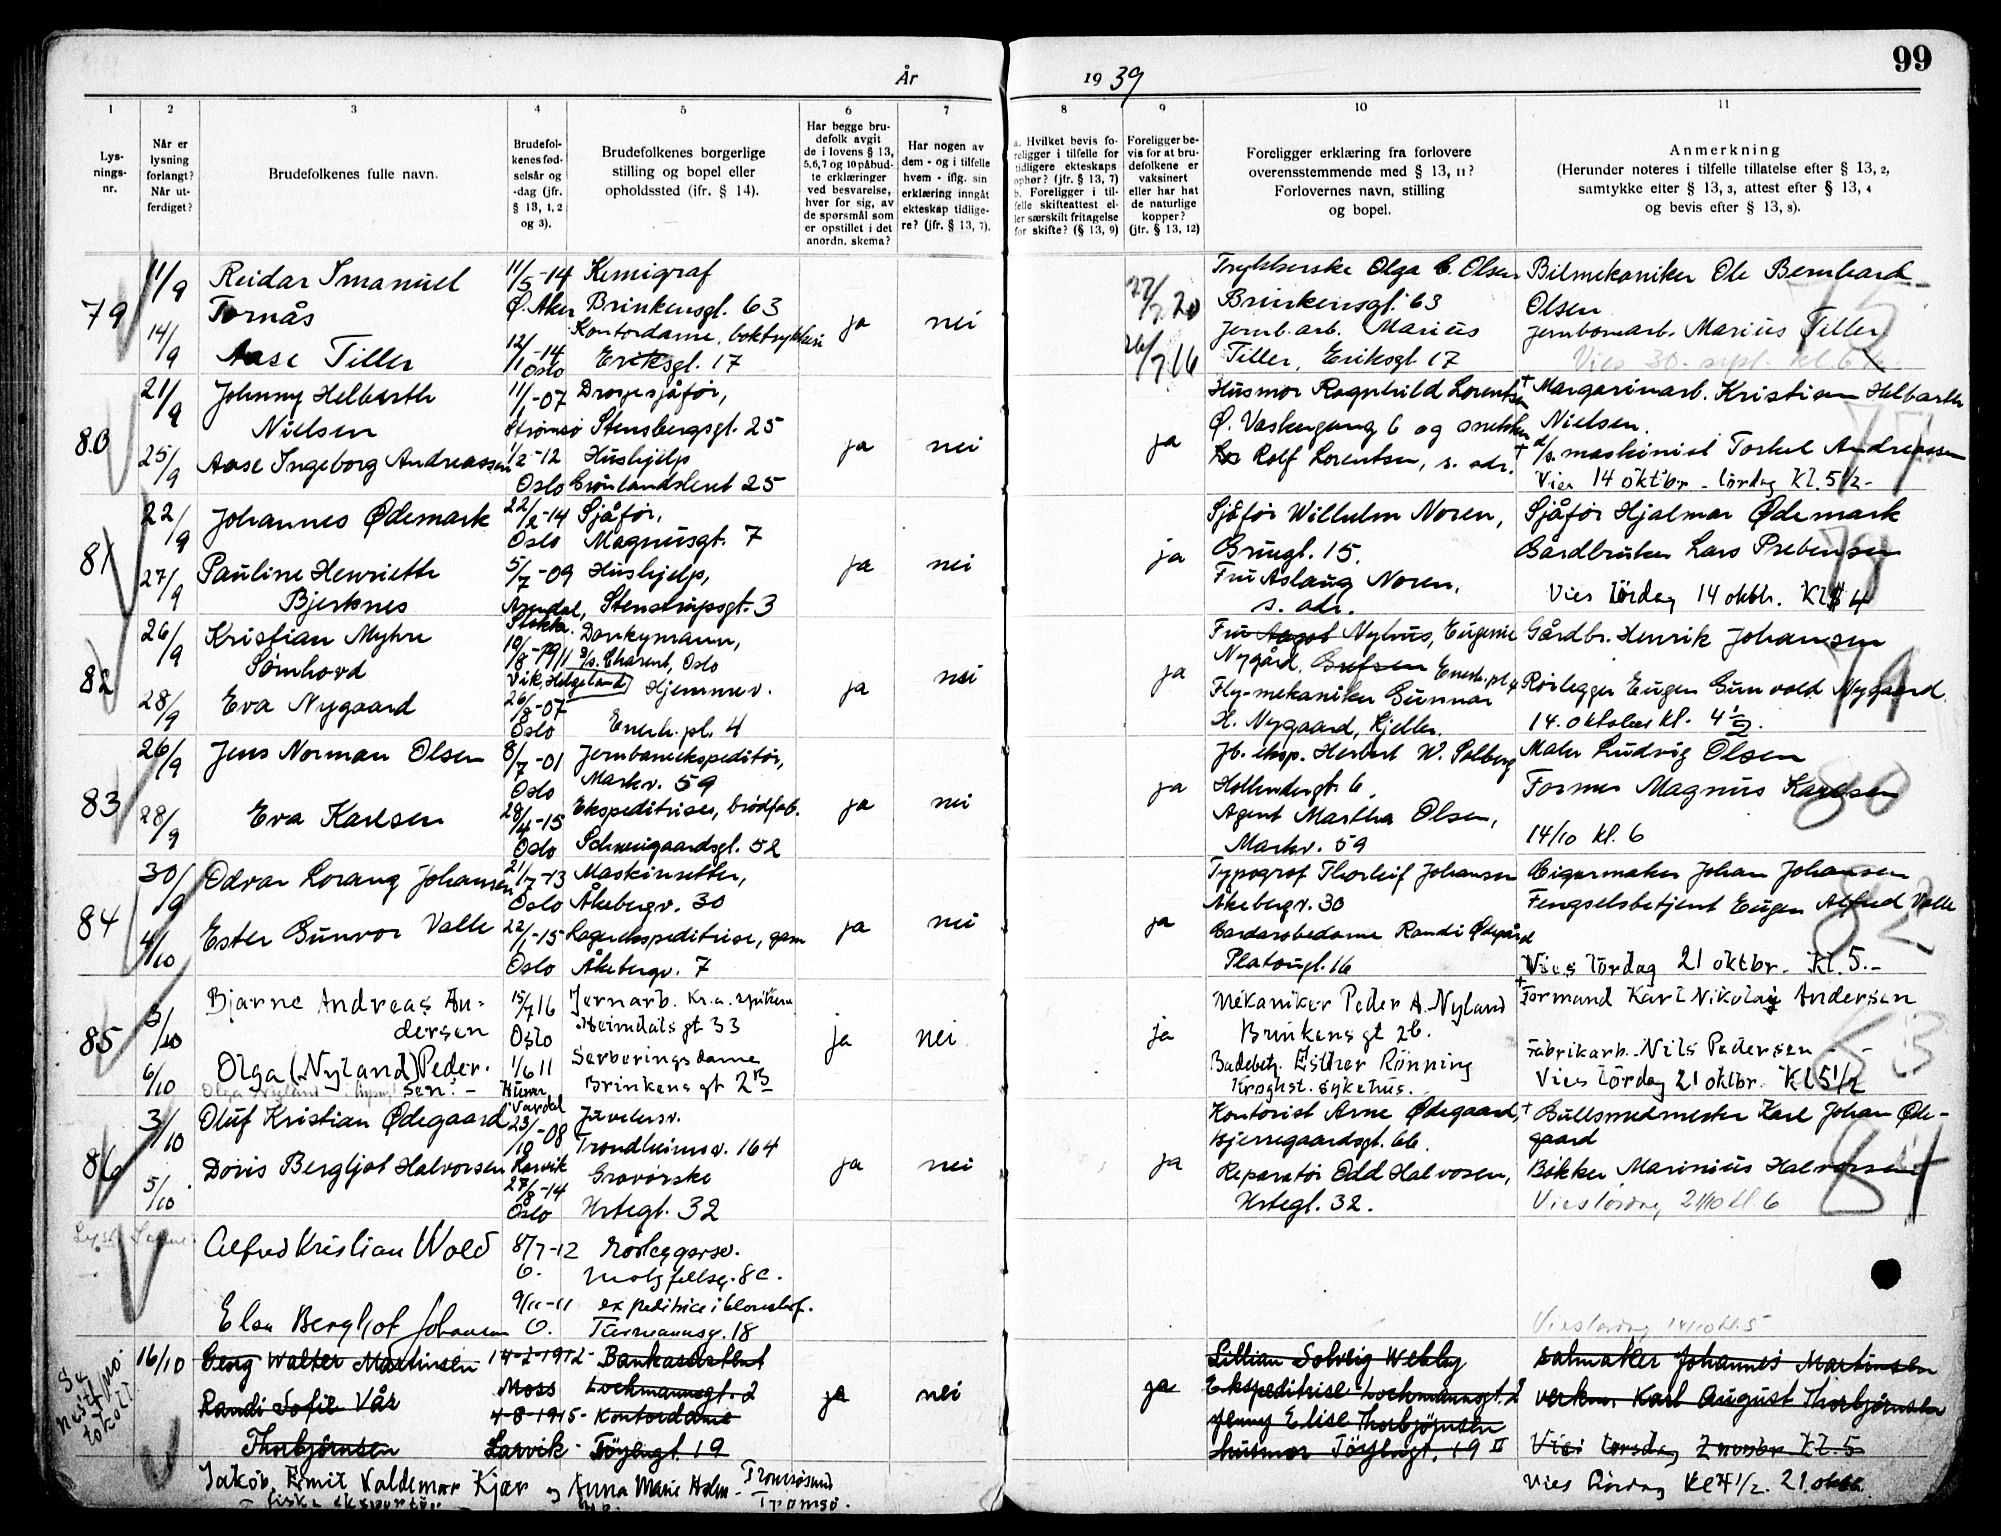 År 1939
99
1
2
3
4
5
6
7
8
9
10
11
Lys-
nings-
nr.
Når er
lysning
forlangt?
Når ut-
ferdiget?
Brudefolkenes fulle navn.
Brudefol-
kenes fød-
selsår og
-dag (jfr.
§ 13, 1, 2
og 3).
Brudefolkenes borgerlige
stilling og bopel eller
opholdssted (ifr. § 14).
Har begge bru-
defolk avgit
de i lovens § 13,
5,6,7 og 10 påbud-
te erklæringer
ved besvarelse,
hver for sig, av
de spørsmål som
er opstillet i det
anordn. skema?
Har nogen av
dem - og i tilfelle
hvem - iflg. sin
erklæring inngått
ekteskap tidlige-
re? (jfr. § 13, 7).
a. Hvilket bevis fo-
religger i tilfelle for
tidligere ekteskaps
ophør? (jfr. § 13, 7)
b. Foreligger i til-
felle skifteattest el-
ler særskilt fritagelse
for skifte? (§ 13, 9)
Foreligger be-
vis for at bru-
defolkene er
vaksinert
eller har hat
de naturlige
kopper?
(jfr. § 13, 12)
Foreligger erklæring fra forlovere
overensstemmende med § 13, 11?
Forlovernes navn, stilling
og bopel.
Anmerkning
(Herunder noteres i tilfelle tillatelse efter § 13, 2,
samtykke efter § 13, 3, attest efter § 13, 4
og bevis efter § 13, 8).
79
11/9
14/9
Reidar Imanuel
Tornås
Aase Tiller
11/5-14
Ø. Aker
12/1-14
Oslo
Kemigraf
Brinkensgt. 63
Kontordame,
Eriksgt. 17
ja
nei
26/7 16
Olga C. Olsen
Brinkensgt. 63
Jernb.arb. Marius
Tiller, Eriksgt. 17
Bilmekaniker Ole Bernhard
Olsen
Jernbanearb. Marius Tiller
Vies 30. sept. kl. 6
80
21/9
25/9
Johnny Helbarth
Nielsen
Aase Ingeborg Andreassen
11/1-07
Strømsø
1/2-12
Oslo
Drosjesjåfør,
Stensbergsgt. 25
Hushjelp
Grønlandsleret 25
ja
nei
ja
Husmor Ragnhild Lorentsen
Ø. Vaskegang 6 og snekker
Rolf Lorentsen, s. adr.
+ Margarinarb. Kristian Helbarth
Nielsen.
+ maskinist Torkel Andreassen
Vies 14 oktbr - lördag Kl. 5½-
81
22/9
27/9
Johannes Ødemark
Pauline Henriette
Bjerknes
22/2-14
Oslo
5/7-09
Arendal,
Sjåfør,
Magnusgt. 7
Hushjelp,
Stenstrupsgt. 3
ja
nei
ja
Sjåfør Wilhelm Noren,
Grüngt. 15.
Fru Aslaug Noren,
s. adr.
Sjåfør Hjalmar Ødemark
Gårdbruker Lars Prebensen
Vies lördag 14 oktbr. Kl 4
79
82
26/9
28/9
Kristian Myhre
Sømhovd
Eva Nygaard
Vik, Helgeland
26/8-07
Oslo
Donkymann,
Hjemmev.
Enerh. pl. 4
ja
nei
ja
Fru Aagot Nyhus, Eugenie
Nygård, Grefsen Enerh. pl. 4
Fly-mekaniker Gunnar
H. Nygaard, Kjeller.
Gårdbr. Henrik Johansen
Rørlegger Eugen Gunvald Nygaard
14. oktober kl. 4½.
83
26/9
28/9
Jens Norman Olsen
Eva Karlsen
8/7-01
Oslo
28/4-15
Oslo
Jernbaneekspeditør,
Markv. 59
Ekspeditrise, brødfab.
Schweigaardsgt. 52
ja
nei
ja
Jb. eksp. Herbert W. Solberg
Hollendergt. 6.
Agent Martha Olsen,
Markv. 59
Maler Ludvig Olsen
Former Magnus Karlsen
14/10 kl. 6
80
84
30/9
4/10
Odvar Lorang Johansen
Ester Gunvor Valle
21/7-13
Oslo
22/1-15
Oslo
Maskinsetter,
Åkebergv. 30
Lagerekspeditrise, garn
Åkebergv. 7
ja
nei
ja
Typograf Thorleif Johansen
Åkebergv. 30
Gardarobedame Randi Ødegård
Platougt. 16
Cigarmaker Johan Johansen
Fengselsbetjent Eugen Alfred Valle
Vies lördag 21 oktbr. Kl. 5.-
82
85
3/10
6/10
Bjarne Andreas An-
dersen
Olga (Nyland) Peder-
sen.-
15/7 16
Oslo
1/6 11
Jernarb.
Heimdals gt 33
Serveringsdame
Brinkens gt 2B
ja
nei
ja
Mekaniker Peder A. Nyland
Brinkens gt 2b.
Badebetj. Esther Rønning
Kroghst. sykehus.
+ Formand Karl Nikolay Andersen
Fabrikarb. Nils Pedersen
Vies lördag 21 oktbr. Kl 5½
83
86
3/10
5/10
Oluf Kristian Ødegaard
Doris Bergljot Halvorsen
23/10-08
27/8-14
Oslo
Juvelerv.
Trondheimsv. 164
Gravørske
Urtegt. 32
ja
nei
ja
Kontorist Arne Ødegaard,
Bjerregaardsgt. 66.
Reparatør Odd Halvorsen,
Urtegt. 32.
+ Gullsmedmester Karl Johan Øde-
gaard
Bøkker Marinius Halvorsen
Vies lördag 21/10 kl. 6
84
Alfred Kristian Wold
8/7-12
O.
Rørleggersv.
8c.
Elsa Bergljot Johansen
9/11-11
O.
Tiermannsg. 18
Vies lördag 14/10 kl. 5
Se
neste pro-
tokoll
16/10
Georg Walter Martinsen
Randi Sofie Vår
Thorbjørnsen
14-2-1912-
Moss
4-8-1915-
Larvik-
Bankassistent
Lochmannsgt. 2
Kontordame
Töyengt. 19
ja
nei
ja
Lillian Solveig Webby
Ekspeditrise Lochmannsgt. 2
Jenny Elise Thorbjørnsen
husmor Töyengt. 19 II
salmaker Johannes Martinsen
verkm. Karl August Thorbjørnsen
Vies torsdag 2 novbr Kl. 5
Jakob Emil Valdemar Kjær og Anna Marie Holm - Tromsøsund
fiskeeksportør
Tromsø.
Vies Lördag Kl 4½. 21 oktbr.